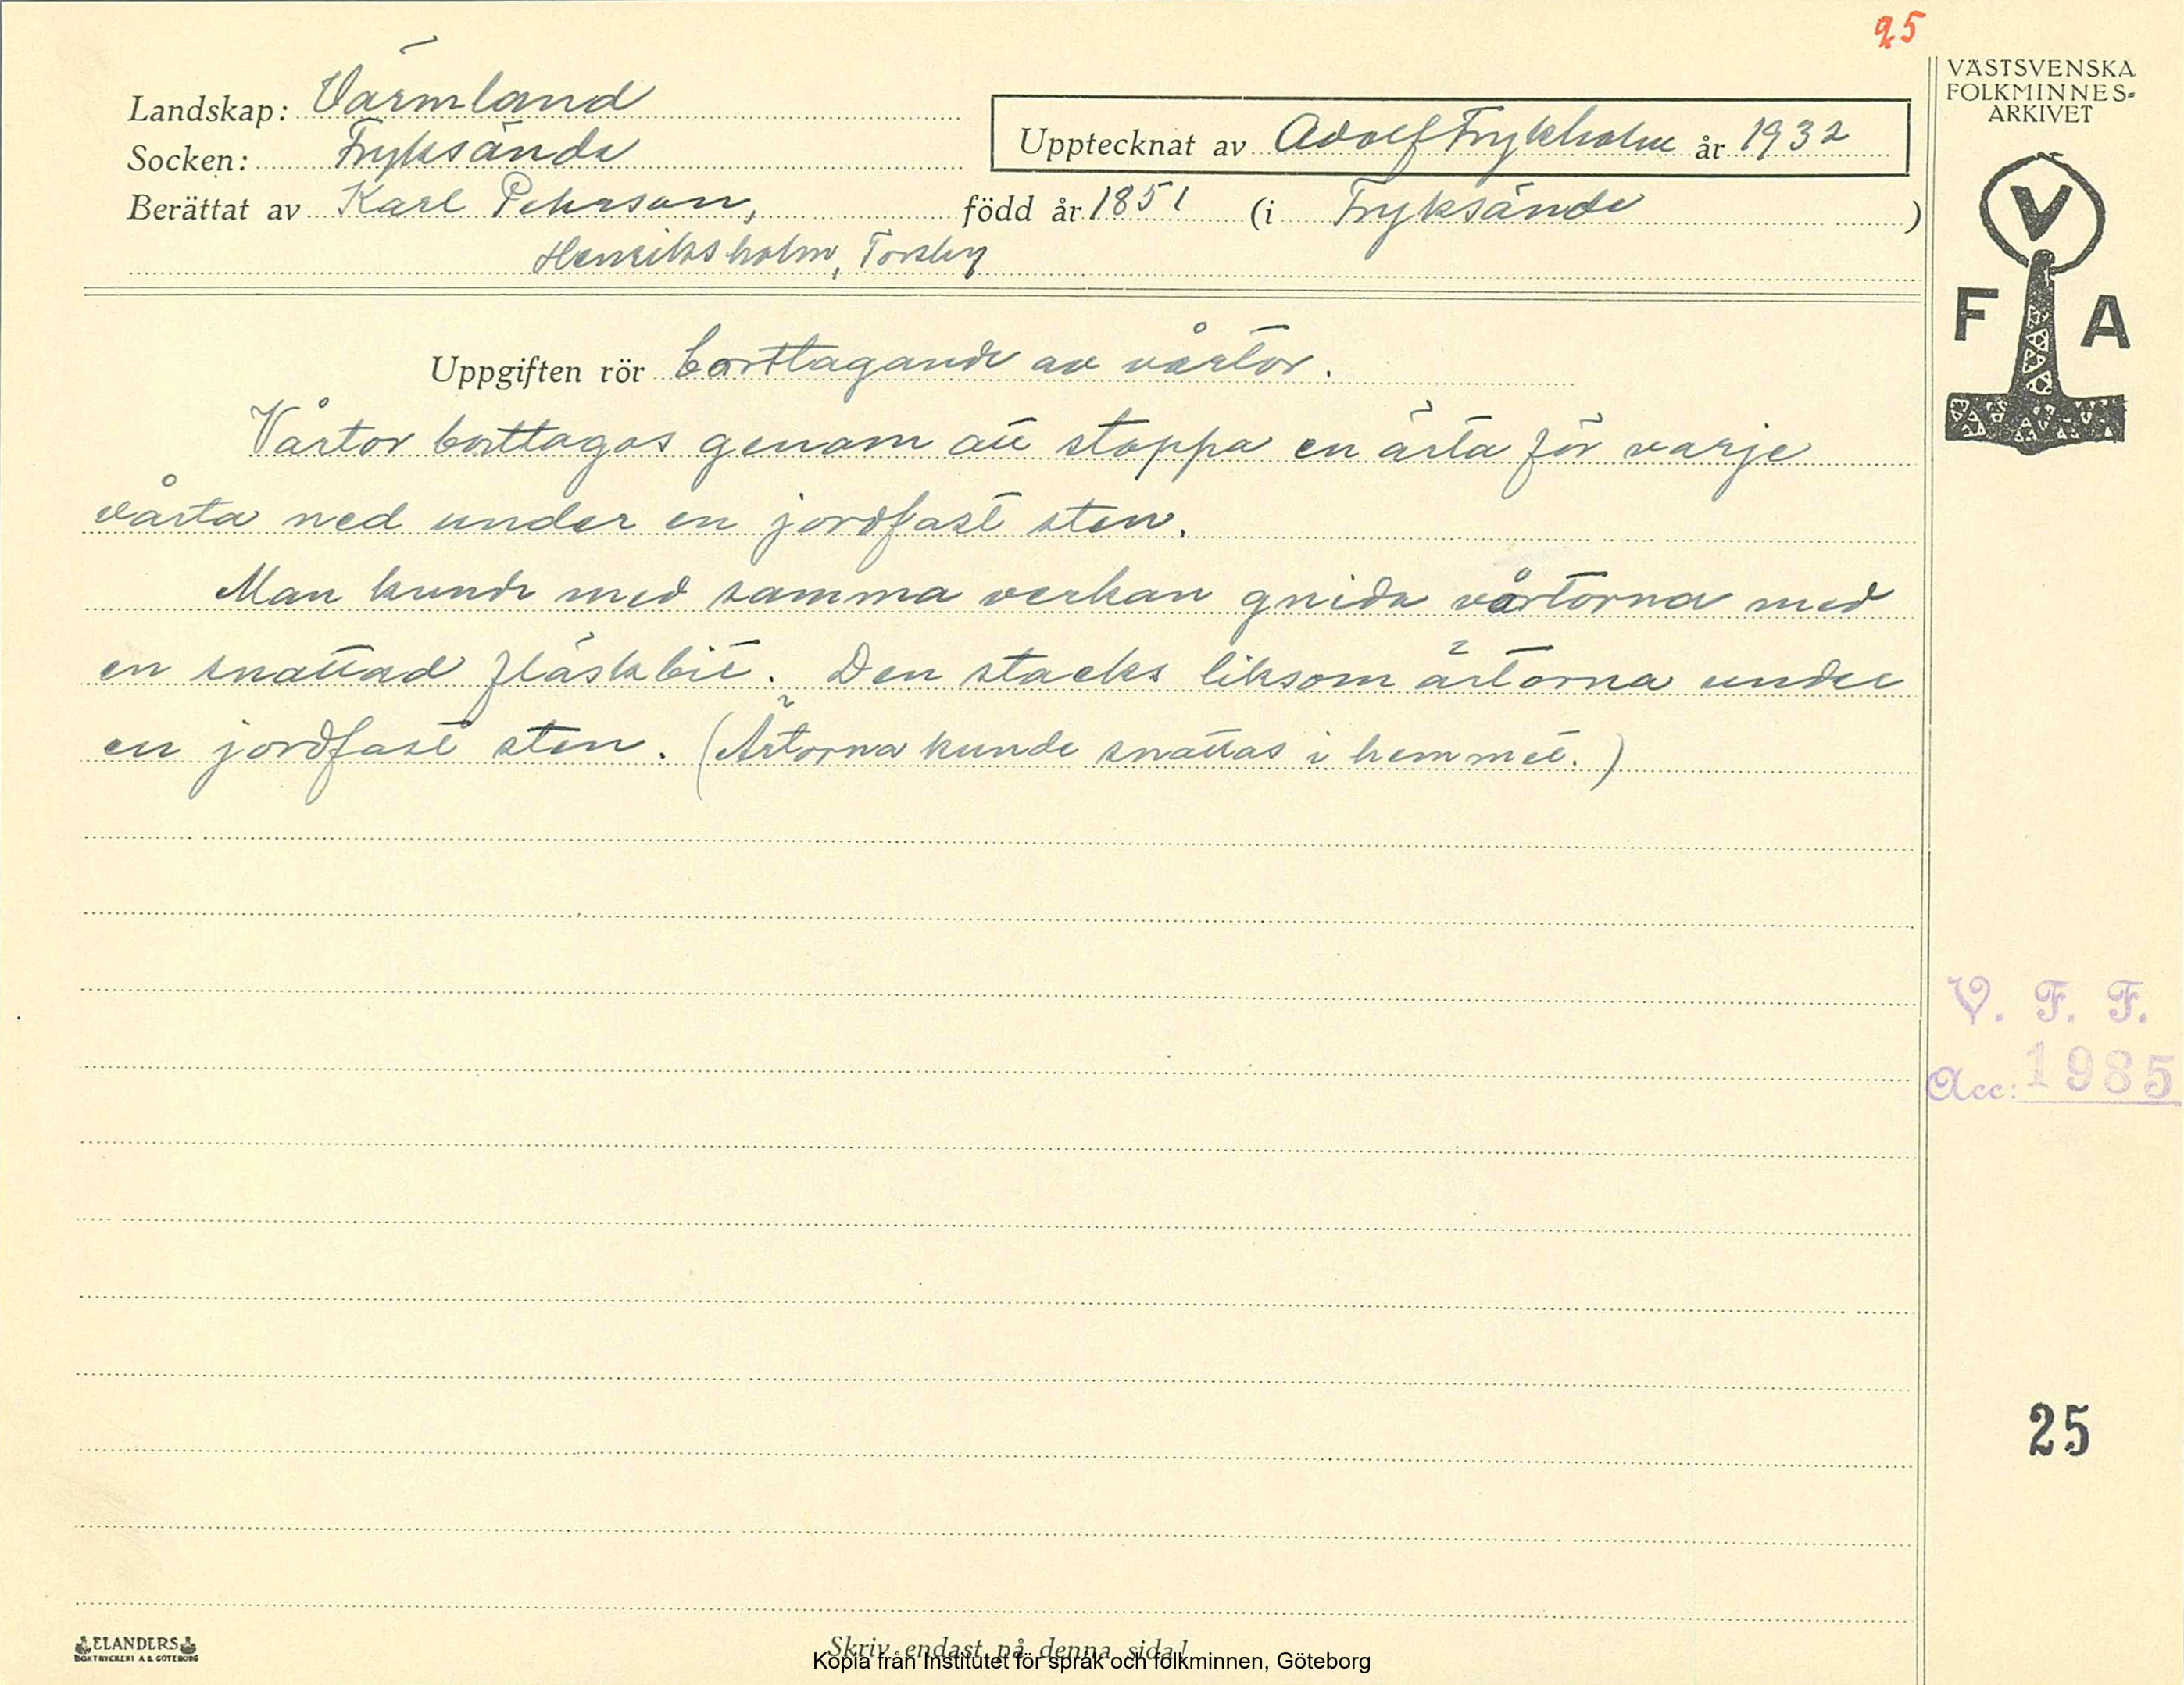 25
VÄSTSVENSKA
FOLKMINNES-
ARKIVET
Landskap: Värmland
Socken: Fryksände
Upptecknat av Adolf Frykholm år 1932
Berättat av Karl Pehrson, född år 1851 (i Fryksände)
Henriksholm, Torsby
V
F A
Uppgiften rör borttagande av vårtor.
Vårtor borttagas genom att stoppa en ärta för varje
vårta ned under en jordfast sten.
Man kunde med samma verkan gnida vårtorna med
en snattad fläskbit. Den stacks liksom ärtorna under
en jordfast sten. (Ärtorna kunde snattas i hemmet.)
V. F. F.
Acc: 1985
25
ELANDERS
BOKTRYCKERI A.B. GÖTEBORG
Skriv endast på denna sida!
Kopia från Institutet för språk och folkminnen, Göteborg